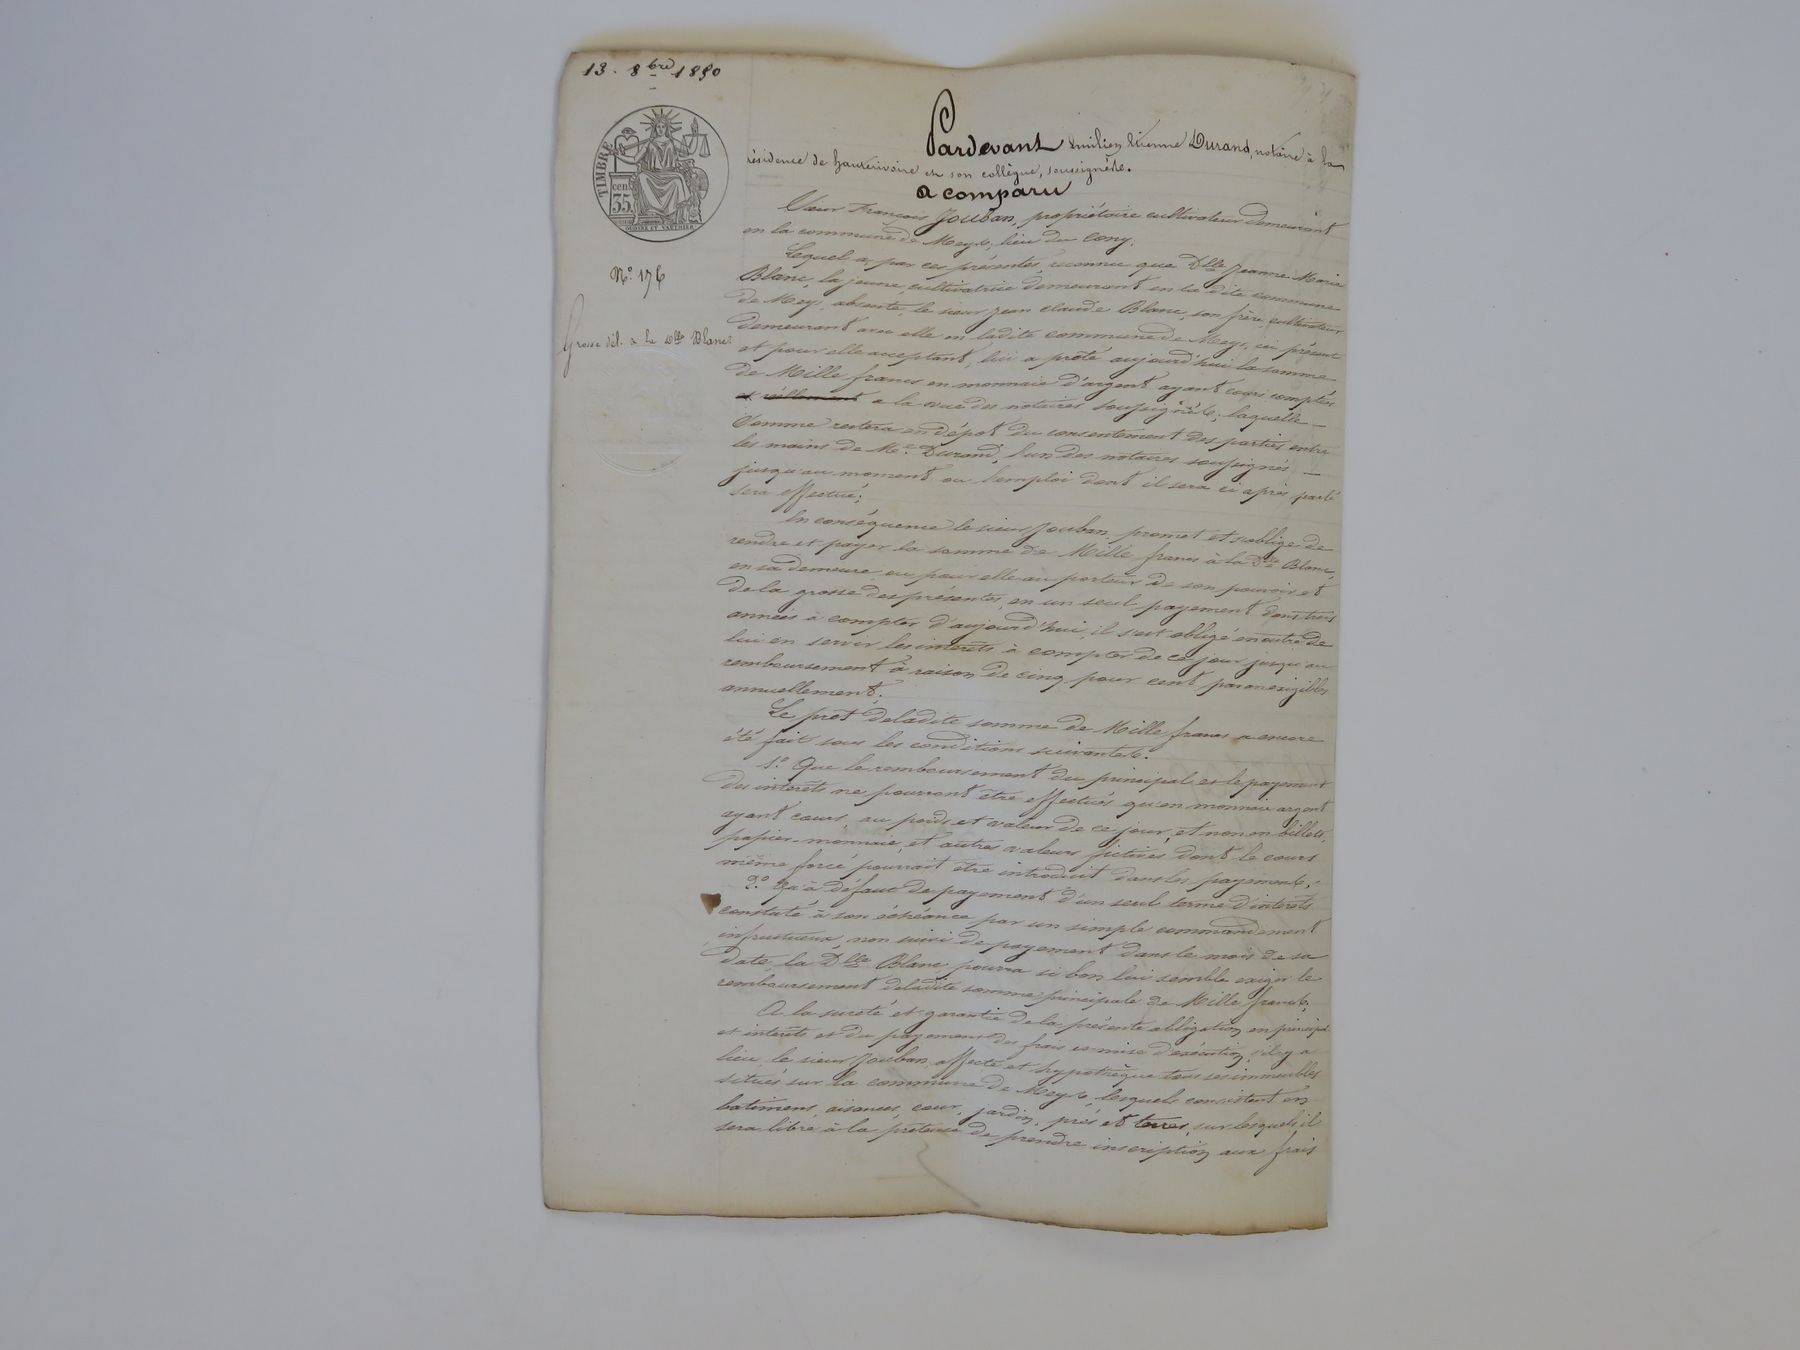 13. 8bre 1850
TIMBRE
cen.
35.
Nº 176
Grosse dél. a la Dlle Blanc
Pardevant Emilien Etienne Durand, notaire à la
résidence de hauterivoire et son collègue, soussignés.
a comparu
Sieur François Jouban, propriétaire cultivateur demeurant
en la commune de Meys, lieu du Cony.
Lequel a par ces présentes, reconnu que Dlle Jeanne Marie
Blanc, la jeune, cultivatrice demeurant en la dite commune
de Mey, absente, le sieur Jean Claude Blanc, son frère cultivateur
demeurant avec elle en ladite commune de Meys, ici présent
et pour elle acceptant, lui a prêté aujourd'hui la somme
de Mille francs en monnaie d'argent ayant cours comptés
et réellement a la vue des notaires soussignés; laquelle
Somme restera en dépot du consentement des parties entre
les mains de Me. Durand, l'un des notaires soussignés
jusqu'au moment ou l'emploi dont il sera ci après parlé
sera effectué;
En conséquence le sieur Jouban promet et s'oblige de
rendre et payer la somme de Mille francs à la Dlle Blanc,
en sa demeure ou pour elle au porteur de son pouvoir et
de la grosse des présentes, en un seul payement dans trois
années à compter d'aujourd'hui, il s'est obligé en outre de
lui en servir les intérêts à compter de ce jour jusqu'au
remboursement à raison de cinq pour cent par an exigibles
annuellement.
Le prêt de ladite somme de Mille francs a encore
été fait sous les conditions suivantes.
1.º Que le remboursement du principal et le payement
des intérêts ne pourront être effectués qu'en monnaie argent
ayant cours, au poids et valeur de ce jour, et non en billets,
papier-monnaie, et autres valeurs fictives dont le cours
même forcé pourrait être introduit dans les payements,
2.º Qu'à défaut de payement d'un seul terme d'intérêts
constaté à son échéance par un simple commandement
infructueux, non suivi de payement dans le mois de sa
date, la Dlle Blanc pourra si bon lui semble exiger le
remboursement de ladite somme principale de Mille francs,
A la sureté et garantie de la présente obligation en principal
et intérêts et du payement des frais et mise d'exécution s'il y a
lieu, le sieur Jouban affecte et hypothèque tous ses immeubles
situés sur la commune de Meys, lesquels consistent en
batiments, aisances, cour, jardin, près et terres, sur lesquels il
sera libre à la prêteuse de prendre inscription aux frais